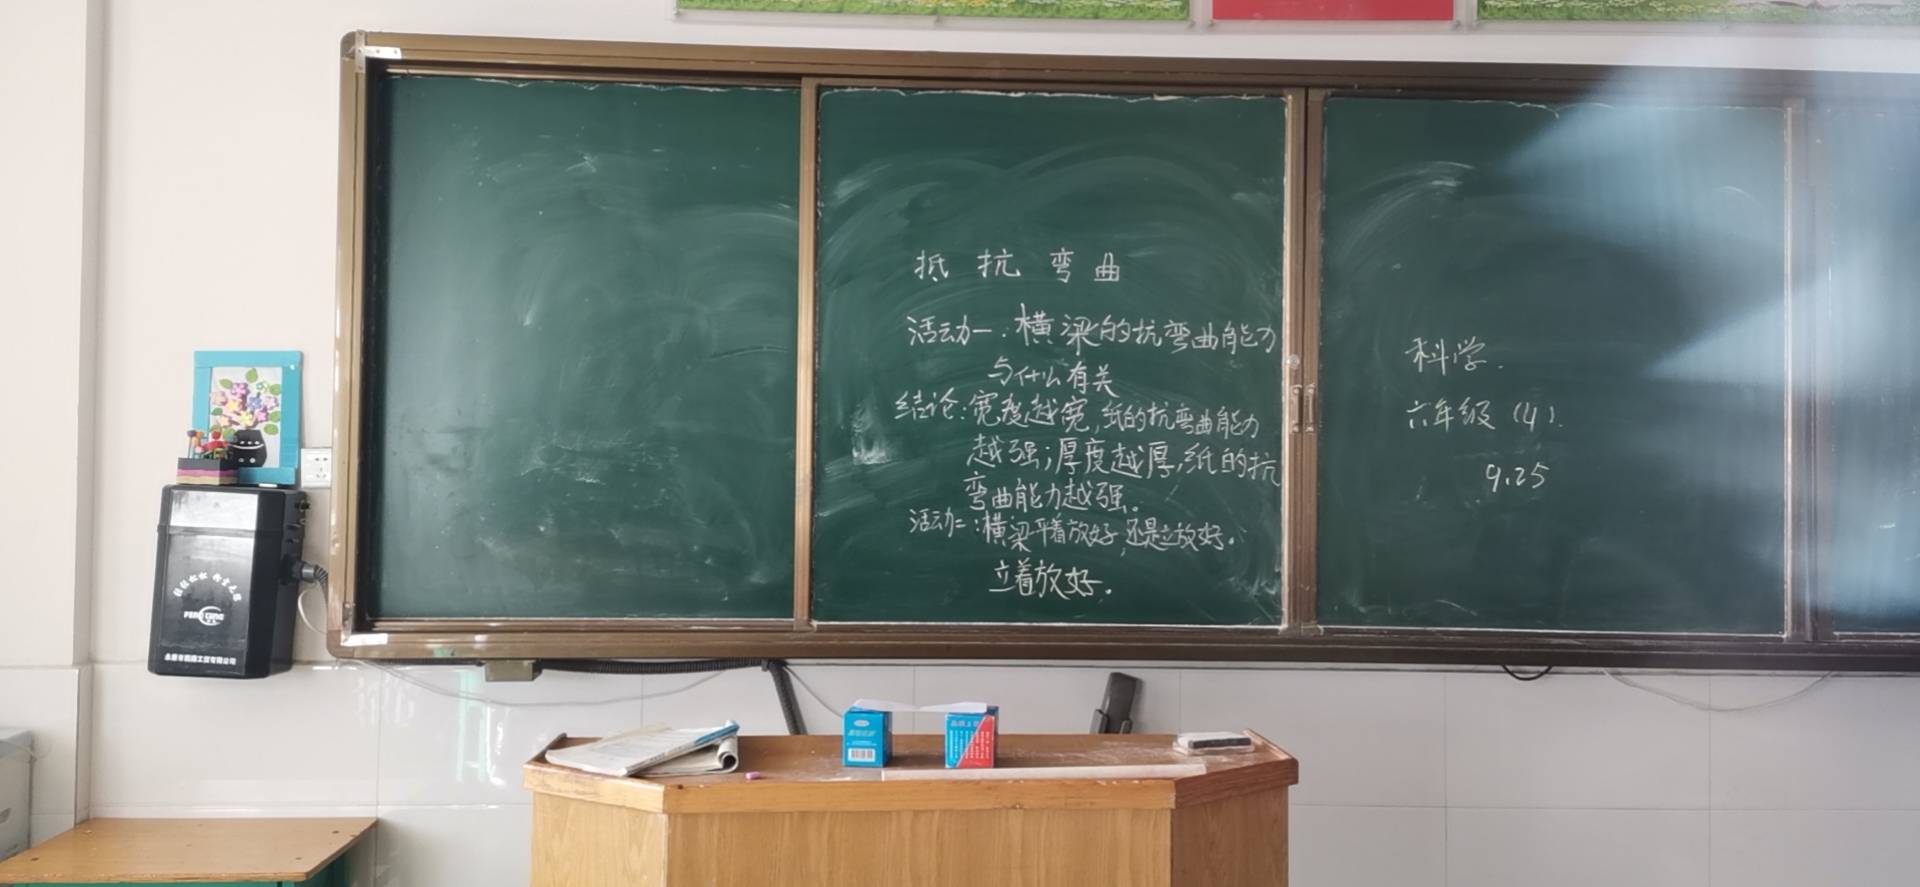 抵抗弯曲
活动一:横梁的抗弯曲能力
与什么有关
结论:宽度越宽,纸的抗弯曲能力
越强;厚度越厚,纸的抗
弯曲能力越强。
活动二:横梁平着放好,还是立放好。
立着放好.
科学.
六年级(4).
9.25